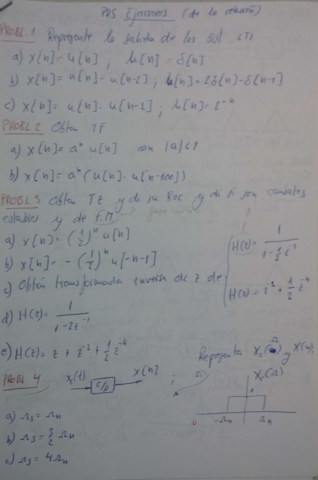 PDS Ejercicios (de la relación)
PROBL. 1 Represente la salida de los sist LTI
a) x[n] = u[n] ; h[n] = δ[n]
b) x[n] = u[n] - u[n-2] ; h[n] = 2δ[n] - δ[n-1]
c) x[n] = u[n] - u[n-2] ; h[n] = 2^-n
PROBL 2 Obten TF
a) x[n] = a^n u[n] con |a|<1
b) x[n] = a^n (u[n] - u[n-100])
PROBL 3 Obten TZ y di su Roc y di si son causales
estables y de F.M.
a) x[n] = (1/2)^n u[n]
b) x[n] = - (1/2)^n u[-n-1]
c) Obtén transformada inversa de z de
H(z) = 1/(1-1/2 z^-1)
H(z) = z^-2 + 1/2 z^-4
d) H(z) = 1/(1-2z^-1)
e) H(z) = z + z^-2 + 1/2 z^-4
PROBL 4
x_c(t) C/D x[n] ; si
Represente X_s(Ω) y X(ω)
X_c(Ω)
-Ωn Ωn
a) Ωs = Ωn
b) Ωs = 3/2 Ωn
c) Ωs = 4Ωn